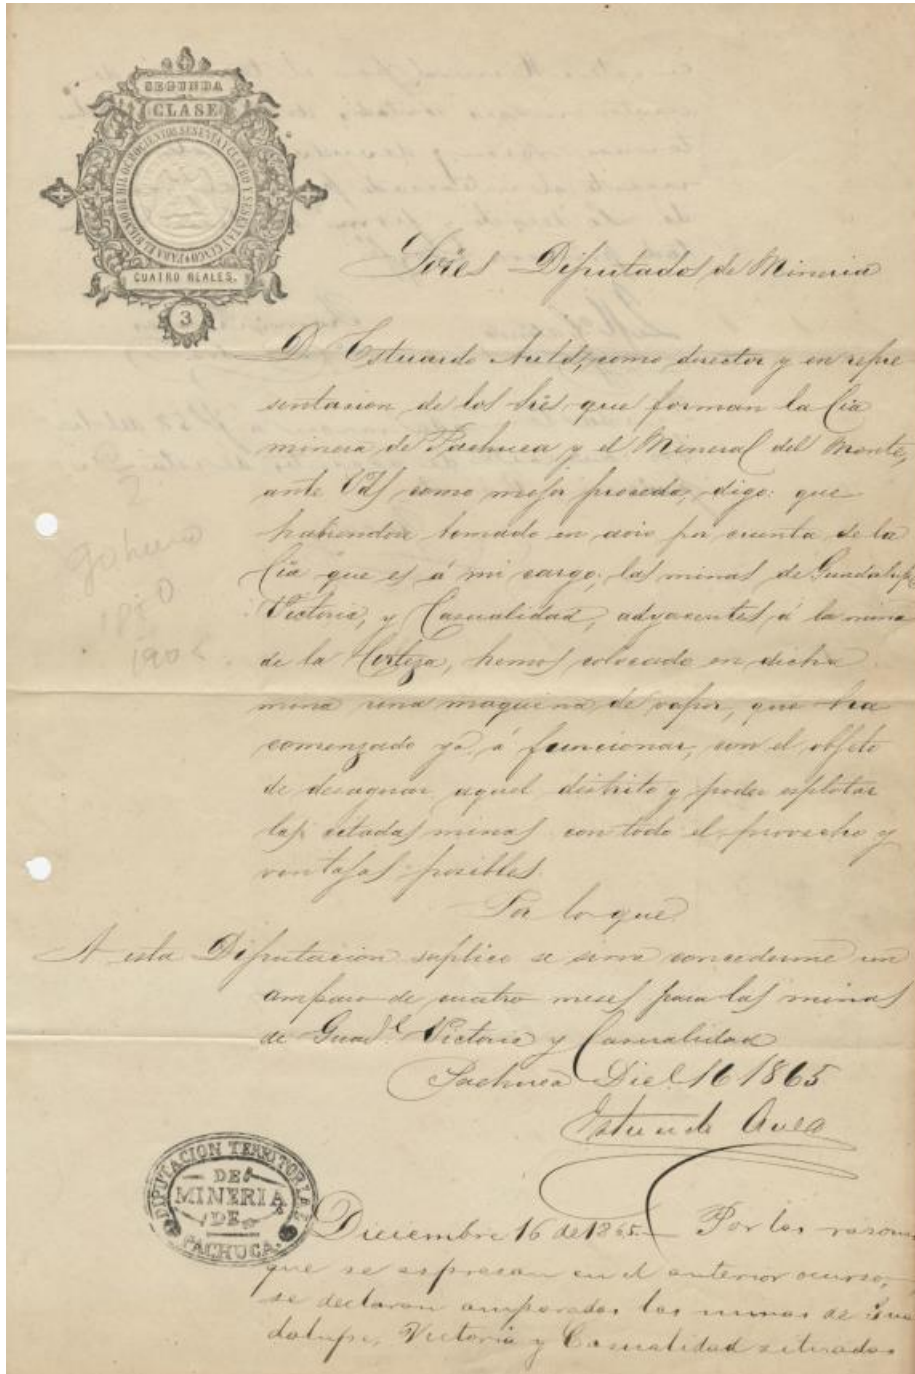 SEGUNDA
CLASE
PARA EL BIENIO DE MIL OCHOCIENTOS SESENTA Y CUATRO Y SESENTA Y CINCO
CUATRO REALES.
3
Sores Diputados de Mineria
D. Estuardo Auld, como director y en repre
sentacion de los Sres que forman la Cia
minera de Pachuca y el Mineral del Monte,
ante Vds como mejor proceda, digo: que
habiendose tomado en avio por cuenta de la
Cia que es á mi cargo, las minas de Guadalupe
Victoria, y Casualidad, adyacentes á la mina
de la Corteza, hemos colocado en dicha
mina una maquina de vapor, que ha
comenzado ya á funcionar, con el objeto
de desaguar aquel distrito y poder esplotar
las citadas minas con todo el provecho y
ventajas posibles.
Por lo que
A esta Diputacion suplico se sirva concederme un
amparo de cuatro meses para las minas
de Guade. Victoria y Casualidad
Pachuca Dice. 16 1865
Estuardo Auld
DIPUTACION TERRITORIAL
DE
MINERIA
DE
PACHUCA.
Diciembre 16 de 1865. Por las razones
que se espresan en el anterior ocurso,
se declaran amparadas las minas de Gua
dalupe, Victoria y Casualidad situadas